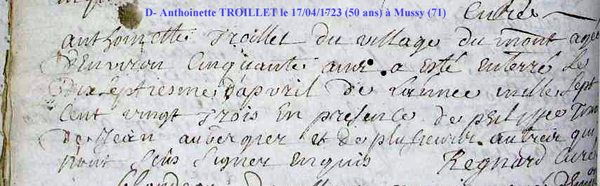 D- Anthoinette TROILLET le 17/04/1723 (50 ans) à Mussy (71)
anthoinette Troillet du village du mont agee
d'environ cinquante ans a esté enterre le
dix septiesme d'apvril de lannee mille sept
cent vingt trois en presence de philippe
de Jean aubergier et de plusieurs autres qui
nont sceu signer enquis Regnard Curé